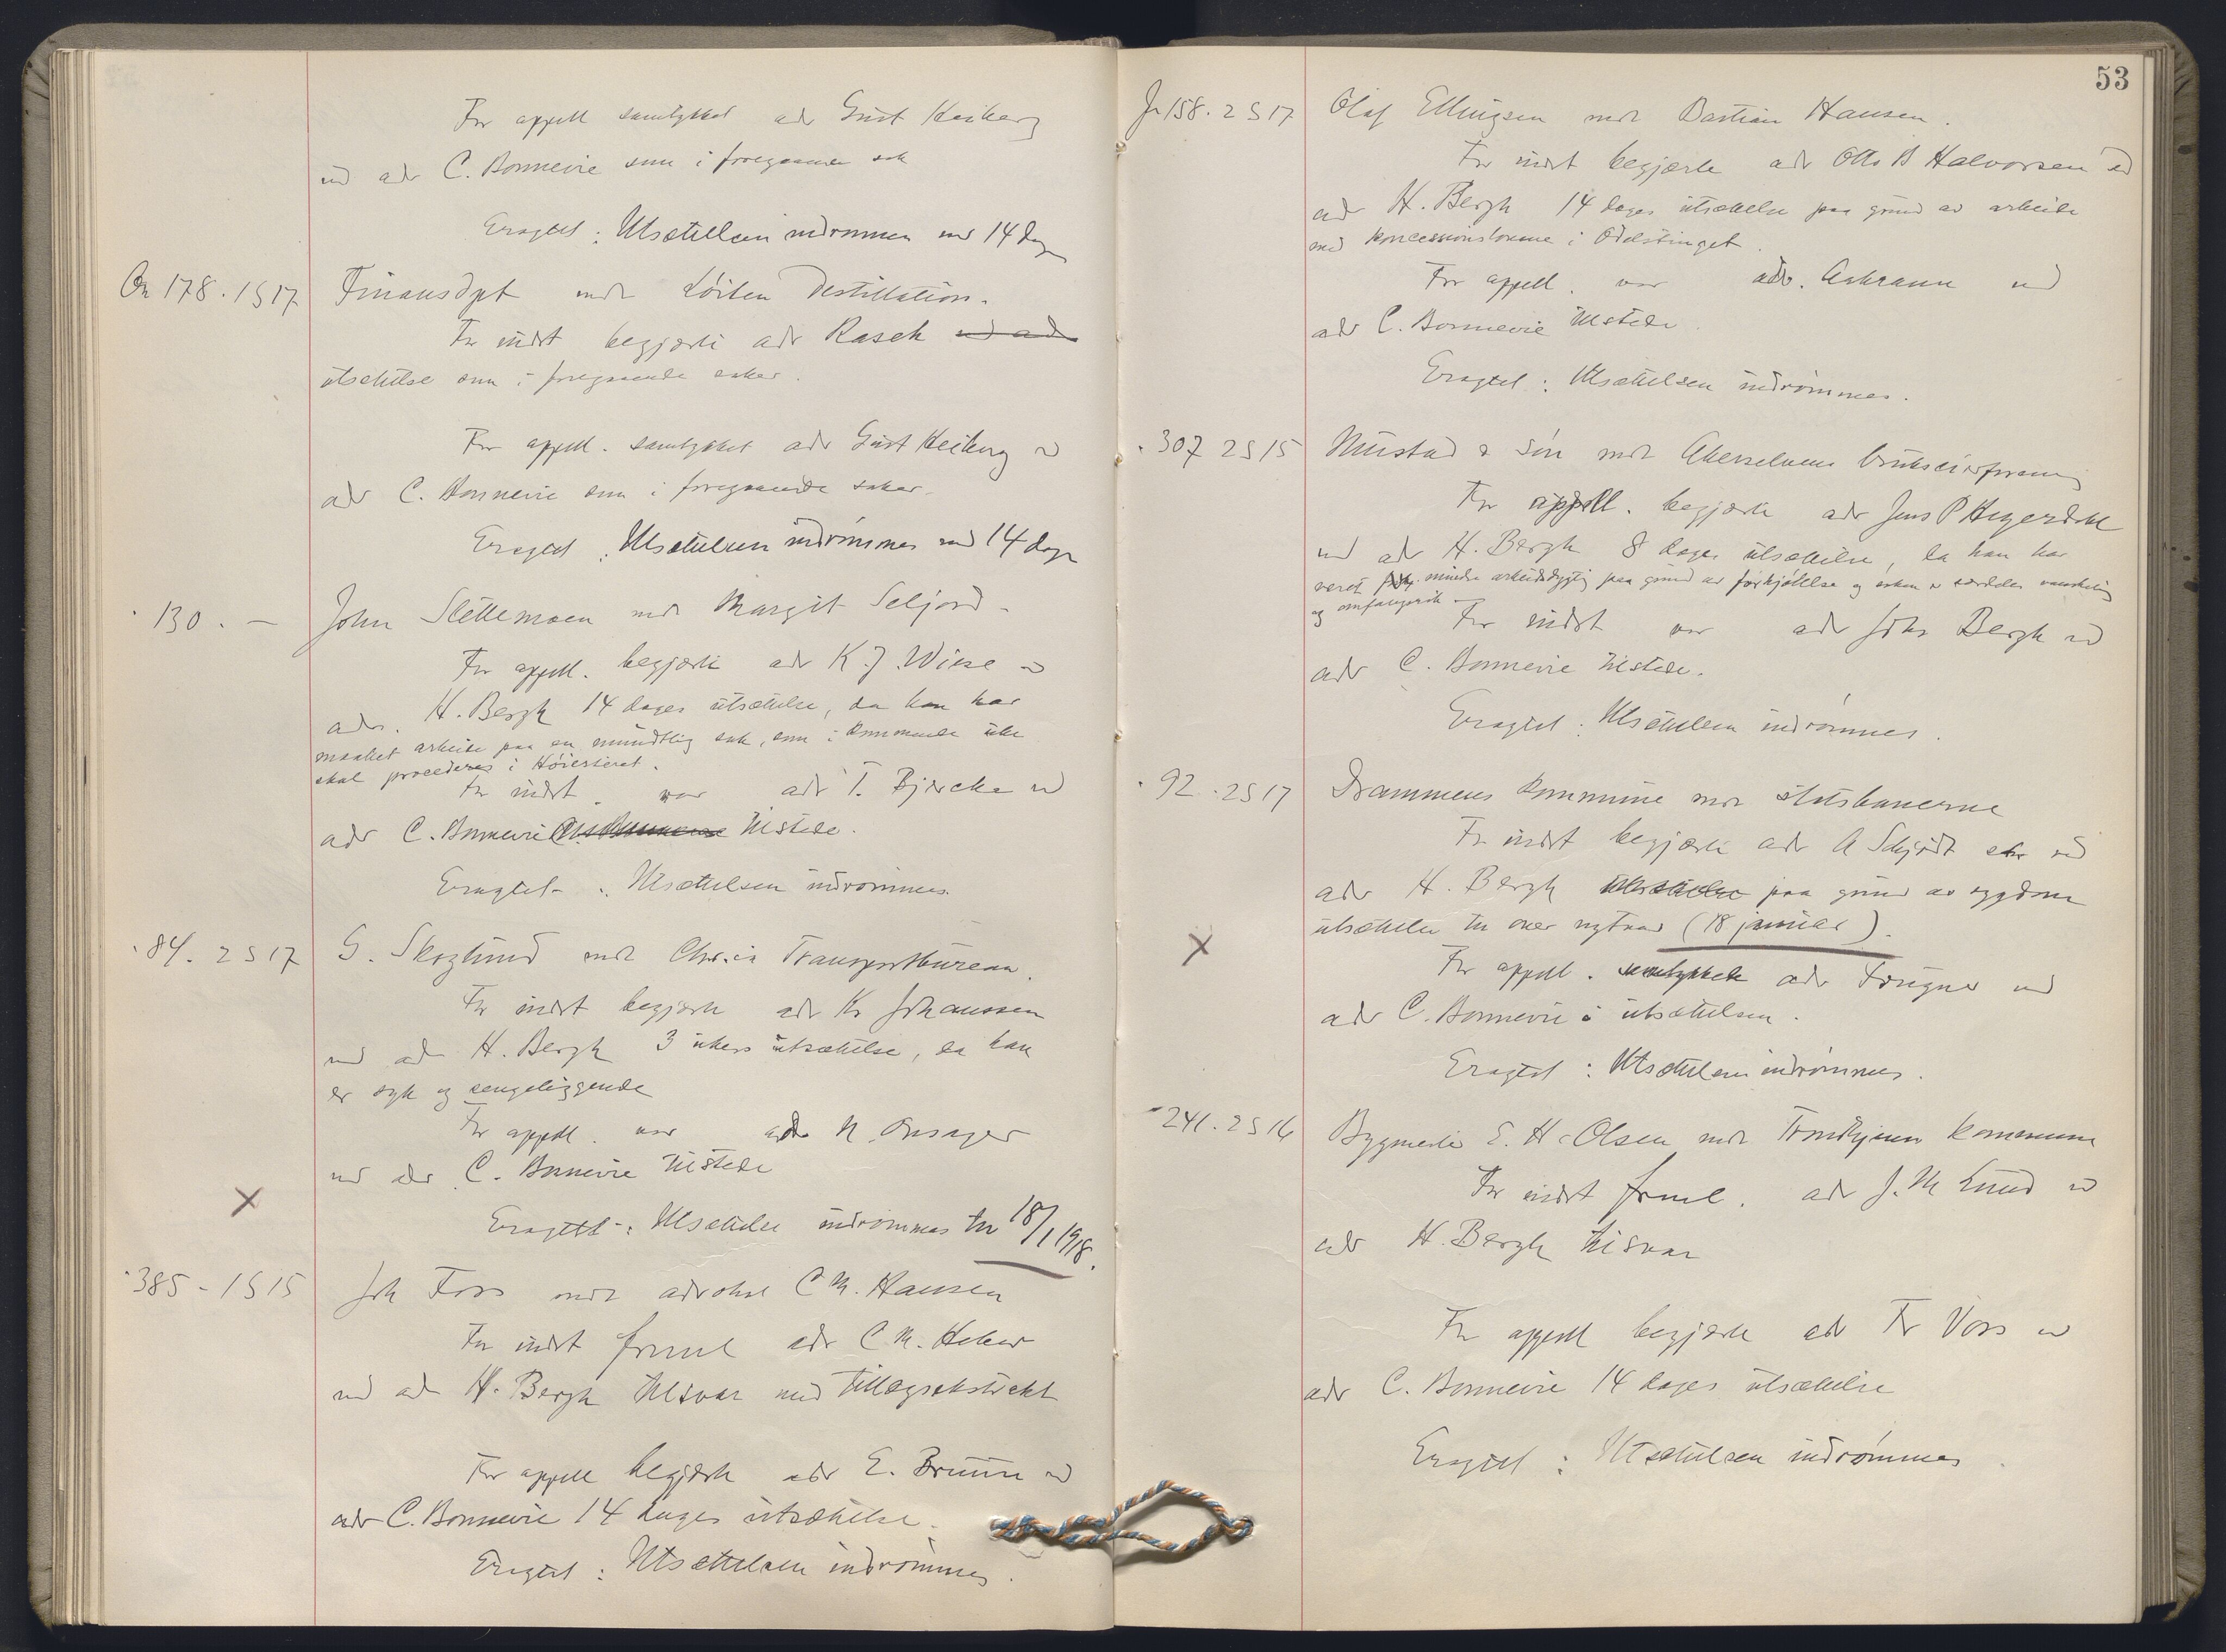 For appell samtykket adv Gust Heiberg
ved adv C. Bonnevie som i foregaaende sak
Eragtet: Utsættelsen indrømmes med 14 dage
On 178. 1 S 17 Finansdpt mot Löiten Destillation.
For indst begjærte adv Rasch ved adv
utsættelse som i foregaaende saker.
For appell. samtykket adv Gust Heiberg v
adv C. Bonnevie som i foregaaende saker.
Eragtet: Utsættelsen indrømmes med 14 dage
130. — John Slettemoen mot Margit Seljord.
For appell. begjærte adv K. J. Wiese v
adv. H. Bergh 14 dages utsættelse, da han har
maattet arbeide paa en mundtlig sak, som i kommende uke
skal procederes i Höiesteret.
For indst. var adv T. Bjercke ved
adv C. Bonnevie tilstede.
Eragtet: Utsættelsen indrømmes.
84. 2 S 17 G. Skoglund mot Chr.ia Transportbureau.
For indst begjærte adv Kr Johanssen
ved adv H. Bergh 3 ukers utsættelse, da han
er syk og sengeliggende
For appell. var adv N. Onsager
ved adv C. Bonnevie tilstede
X
Eragtet: Utsættelse indrømmes til 18/1 1918.
385 - 1 S 15 Joh Foss mot advokat C M. Hansen
For indst freml adv C M. Heber
ved adv H. Bergh tilsvar med Tillægsekstrakt
For appell begjærte adv E. Bruun v
adv C. Bonnevie 14 dages utsættelse.
Eragtet: Utsættelsen indrømmes.
53
Fr 158. 2 S 17 Olaf Ellingsen mot Bastian Hansen.
For indst begjærte adv Otto B Halvorsen ved
adv H. Bergh 14 dages utsættelse paa grund av arbeide
med koncessionslovene i Odelstinget.
For appell. var adv. Aakrann ved
adv C. Bonnevie tilstede.
Eragtet: Utsættelsen indrømmes.
307 2 S 15 Mustad & Sön mot Akerselvens brukseierforening
For appell. begjærte adv Jens P Heyerdahl
ved adv H. Bergh 8 dages utsættelse, da han har
været mindre arbeidsdygtig paa grund av forkjölelse og saken er særdeles vanskelig
og omfangsrik —
For indst var adv Johs Bergh ved
adv C. Bonnevie tilstede.
Eragtet: Utsættelsen indrømmes.
92. 2 S 17 Drammens kommune mot statsbanerne
For indst begjærte adv A Schjödt ved
adv H. Bergh paa grund av sygdom
utsættelse til over nytaar (18 januar).
X
For appell. samtykket adv Fougner ved
adv C. Bonnevie i utsættelsen.
Eragtet: Utsættelsen indrømmes.
241. 2 S 16 Bygmester E. H. Olsen mot Trondhjems kommune
For indst freml. adv J. M Lund v
adv H. Bergh tilsvar
For appell begjærte adv Fr Voss v
adv C. Bonnevie 14 dages utsættelse
Eragtet: Utsættelsen indrømmes